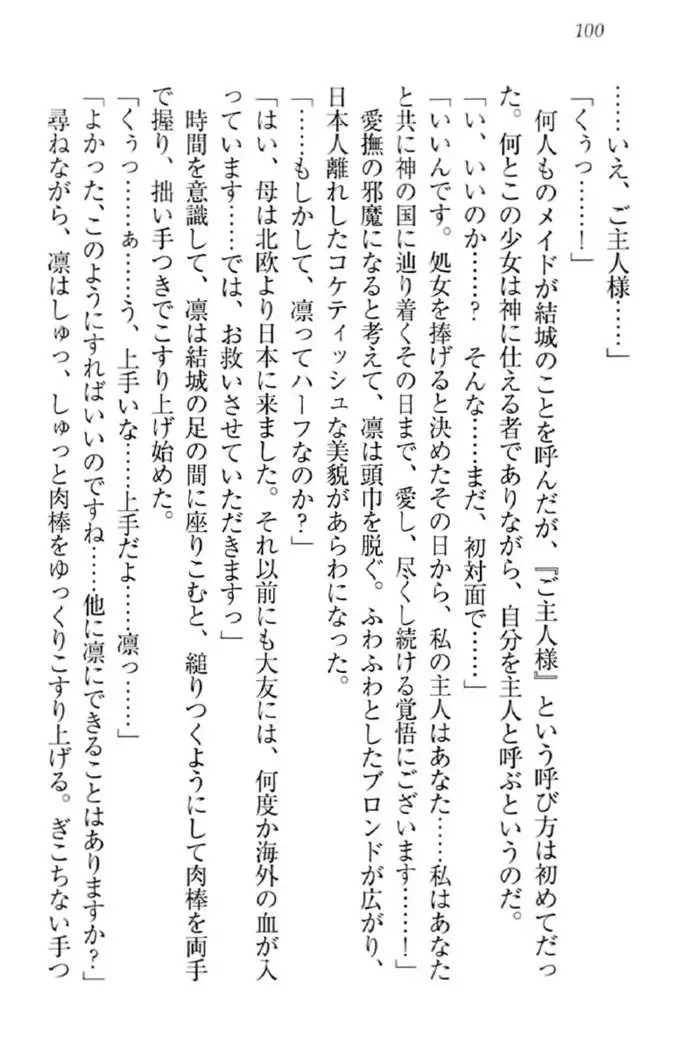 100
……いえ、ご主人様……」
「くぅっ……！」
何人ものメイドが結城のことを呼んだが、『ご主人様』という呼び方は初めてだっ
た。何とこの少女は神に仕える者でありながら、自分を主人と呼ぶというのだ。
「い、いいのか……？　そんな……まだ、初対面で……」
「いいんです。処女を捧げると決めたその日から、私の主人はあなた……私はあなた
と共に神の国に辿り着くその日まで、愛し、尽くし続ける覚悟にございます……！」
愛撫の邪魔になると考えて、凛は頭巾を脱ぐ。ふわふわとしたブロンドが広がり、
日本人離れしたコケティッシュな美貌があらわになった。
「……もしかして、凛ってハーフなのか？」
「はい、母は北欧より日本に来ました。それ以前にも大友には、何度か海外の血が入
っています……では、お救いさせていただきますっ」
時間を意識して、凛は結城の足の間に座りこむと、縋りつくようにして肉棒を両手
で握り、拙い手つきでこすり上げ始めた。
「くぅっ……ぁ……う、上手いな……上手だよ……凛っ……」
「よかった、このようにすればいいのですね……他に凛にできることはありますか？」
尋ねながら、凛はしゅっ、しゅっと肉棒をゆっくりこすり上げる。ぎこちない手つ